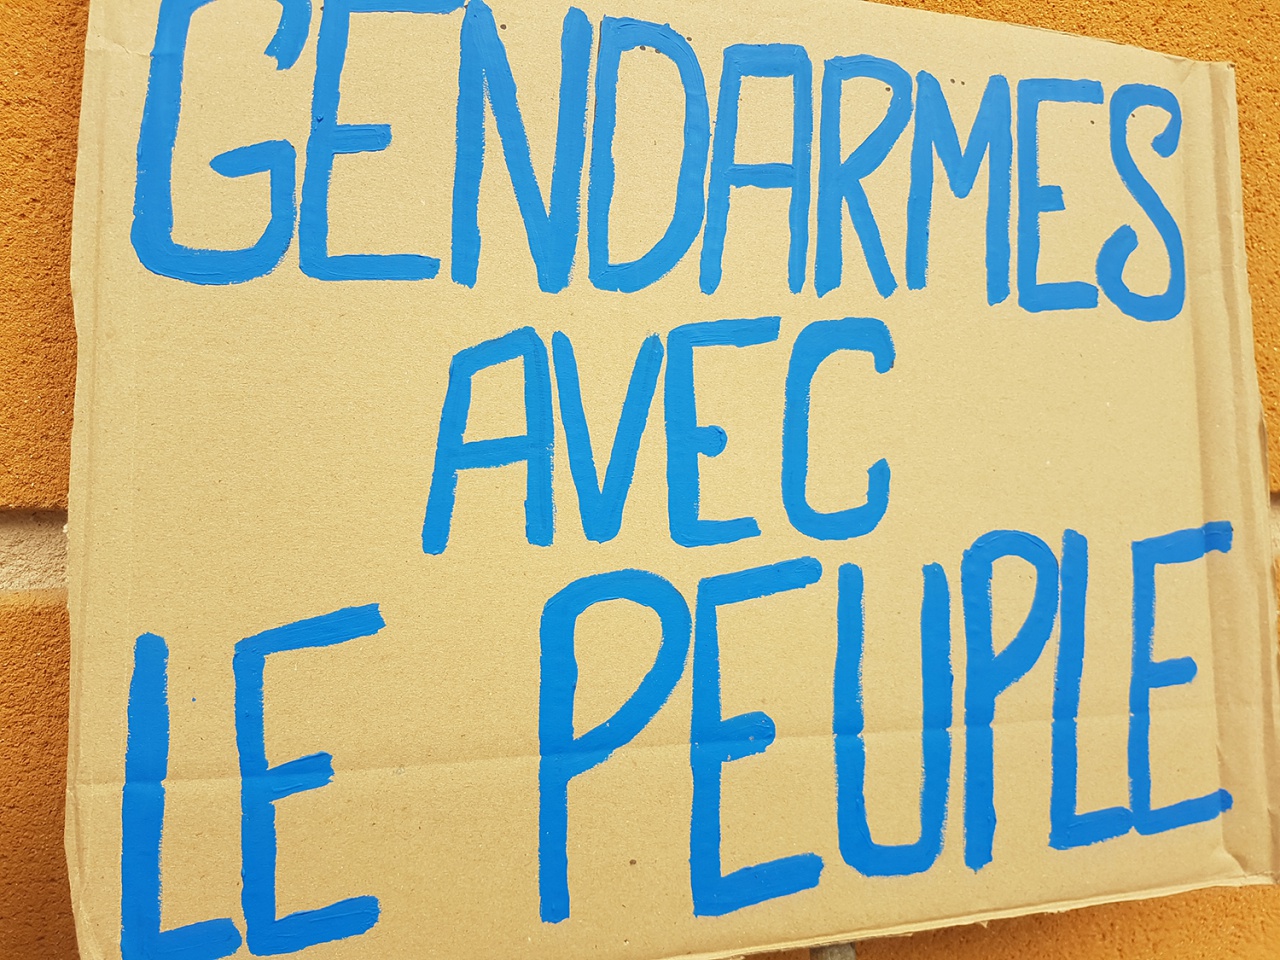 GENDARMES
AVEC
LE PEUPLE